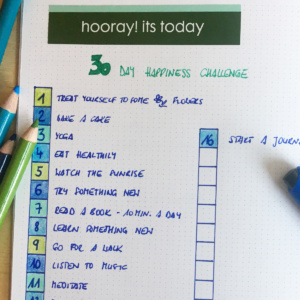 hooray! its today
30 DAY HAPPINESS CHALLENGE
1 TREAT YOURSELF TO SOME FLOWERS
2 BAKE A CAKE
3 YOGA
4 EAT HEALTHILY
5 WATCH THE SUNRISE
6 TRY SOMETHING NEW
7 READ A BOOK - 10 MIN. A DAY
8 LEARN SOMETHING NEW
9 GO FOR A WALK
10 LISTEN TO MUSIC
11 MEDITATE
16 START A JOURN